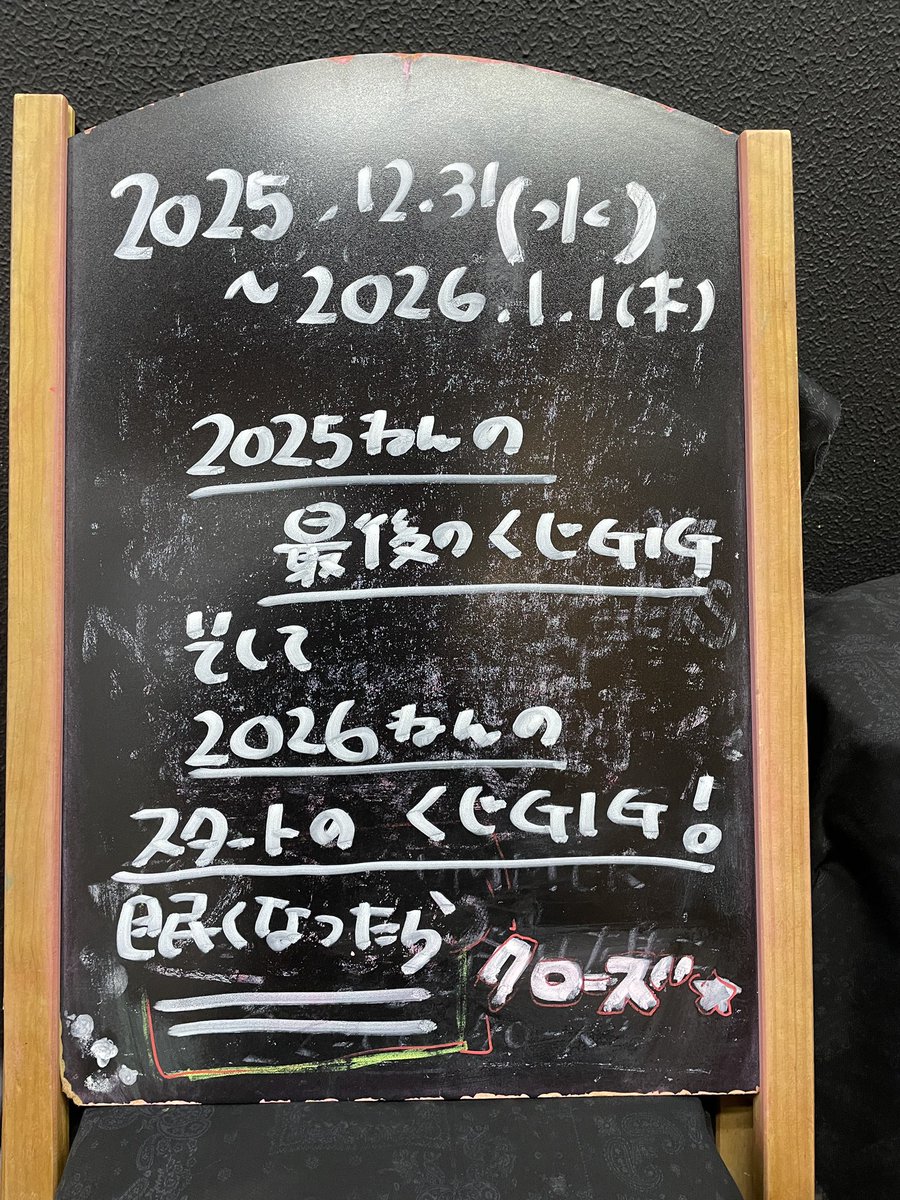 2025.12.31(水)
~2026.1.1(木)
2025ねんの
最後のくじGIG
そして
2026ねんの
スタートの くじGIG!
眠くなったら
クローズ